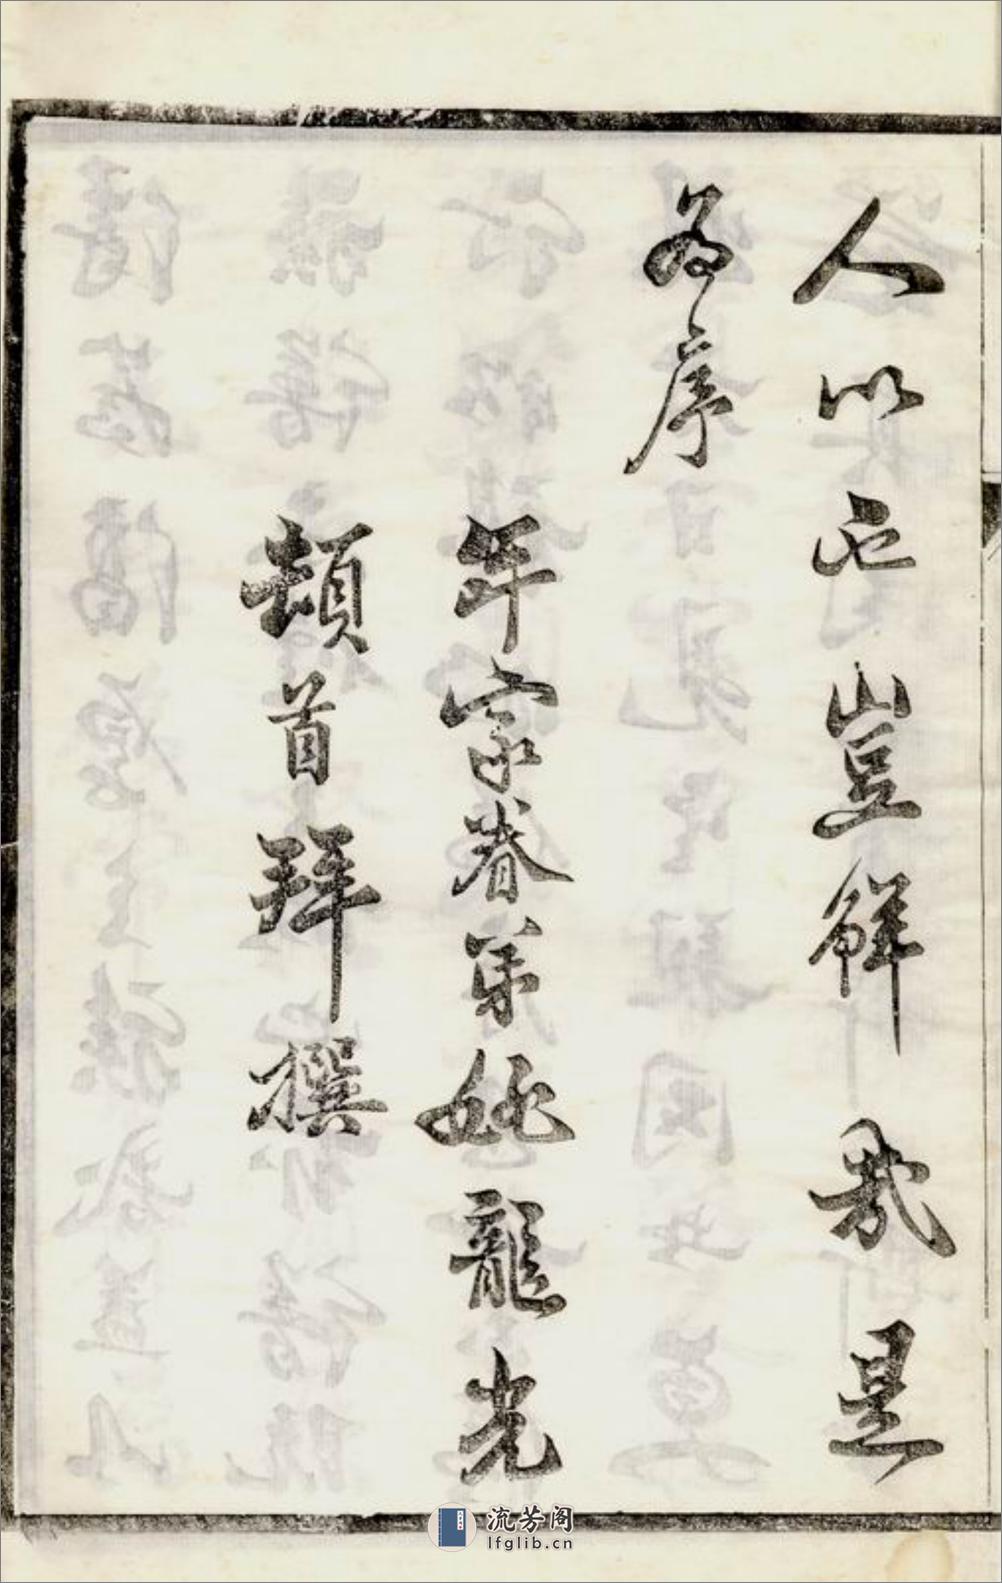 人以也豈鮮哉是
為序
年家眷弟姚龍光
頓首拜撰
流芳阁
lfglib.cn